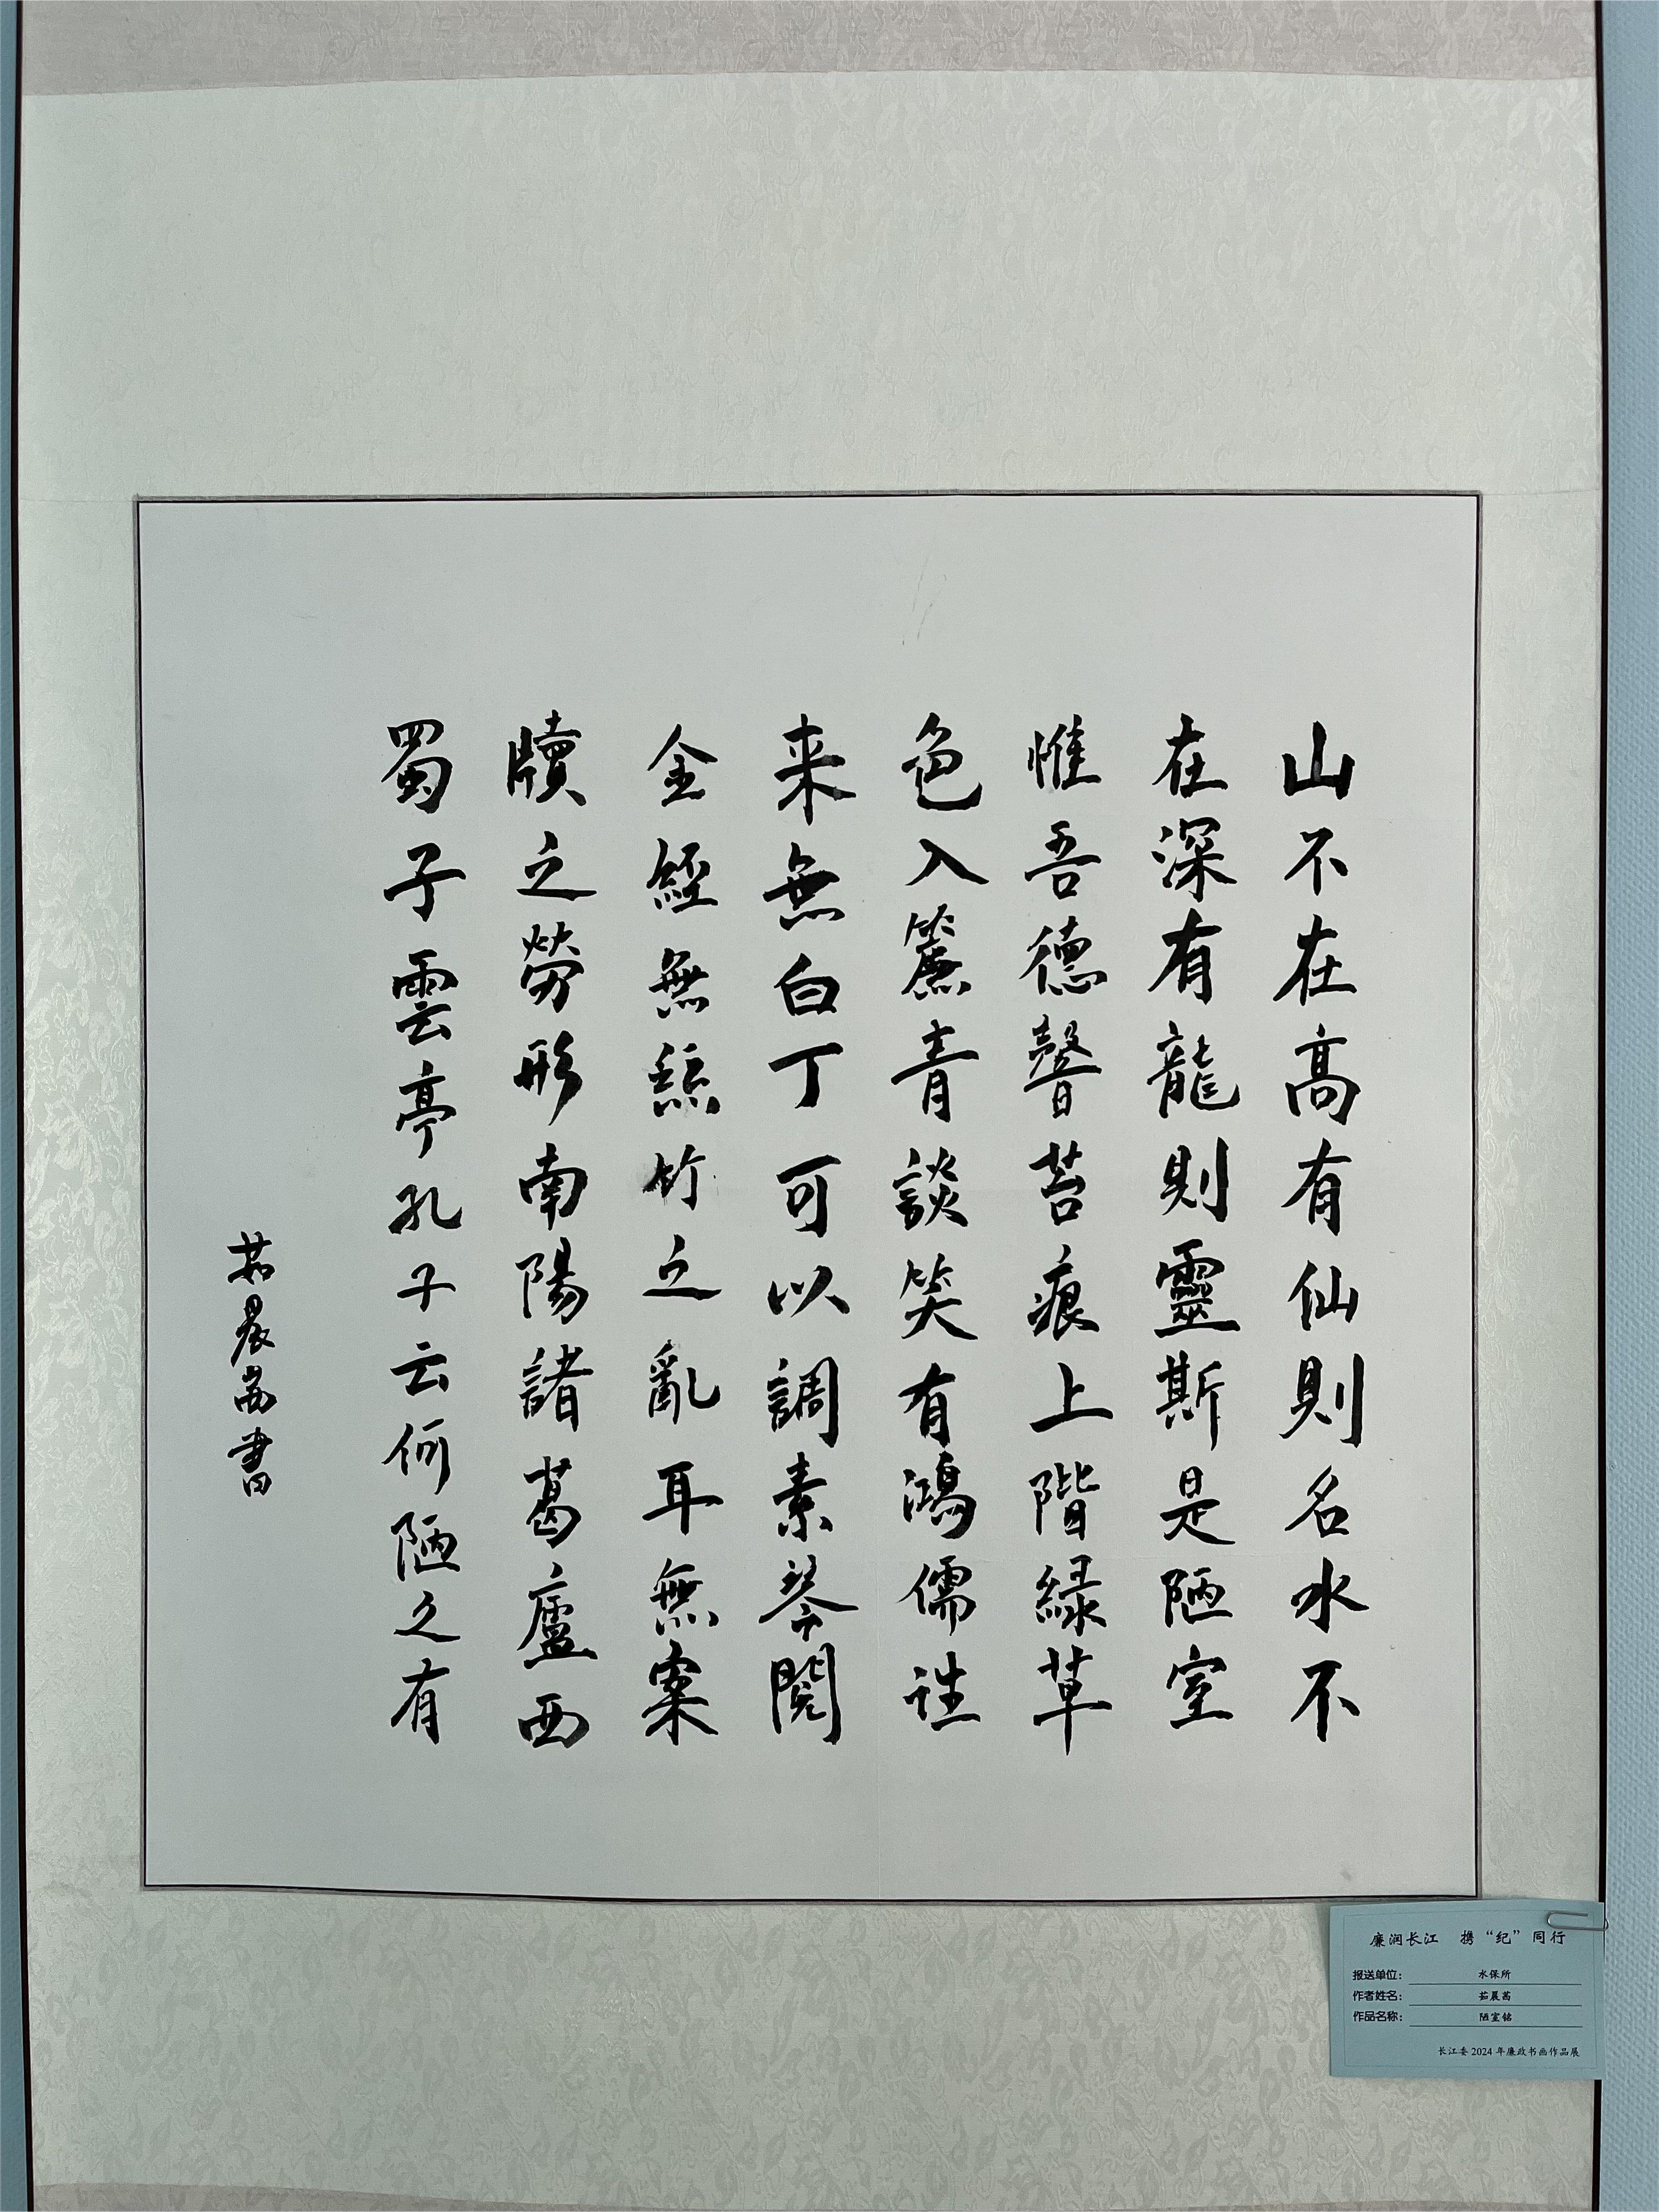 山不在高有仙則名水不
在深有龍則靈斯是陋室
惟吾德馨苔痕上階緑草
色入簾青談笑有鴻儒往
来無白丁可以調素琴閱
金經無絲竹之亂耳無案
牘之勞形南陽諸葛廬西
蜀子雲亭孔子云何陋之有
茹晨茜書
廉润长江 携“纪”同行
报送单位: 水保所
作者姓名: 茹晨茜
作品名称: 陋室铭
长江委 2024 年廉政书画作品展